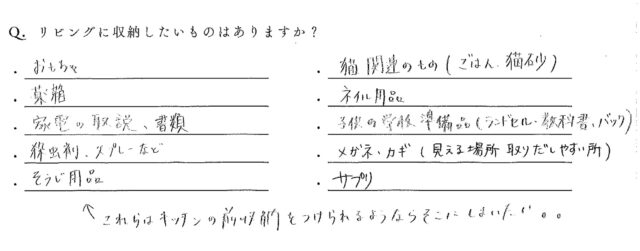 Q. リビングに収納したいものはありますか？
・おもちゃ
・薬箱
・家電の取説、書類
・殺虫剤、スプレーなど
・そうじ用品
・猫関連のもの(ごはん、猫砂)
・ネイル用品
・子供の学校準備品(ランドセル・教科書、バック)
・メガネ、カギ(見える場所 取りだしやすい所)
・サプリ
↑これらはキッチンの をつけられるようならそこにしまいたい。。